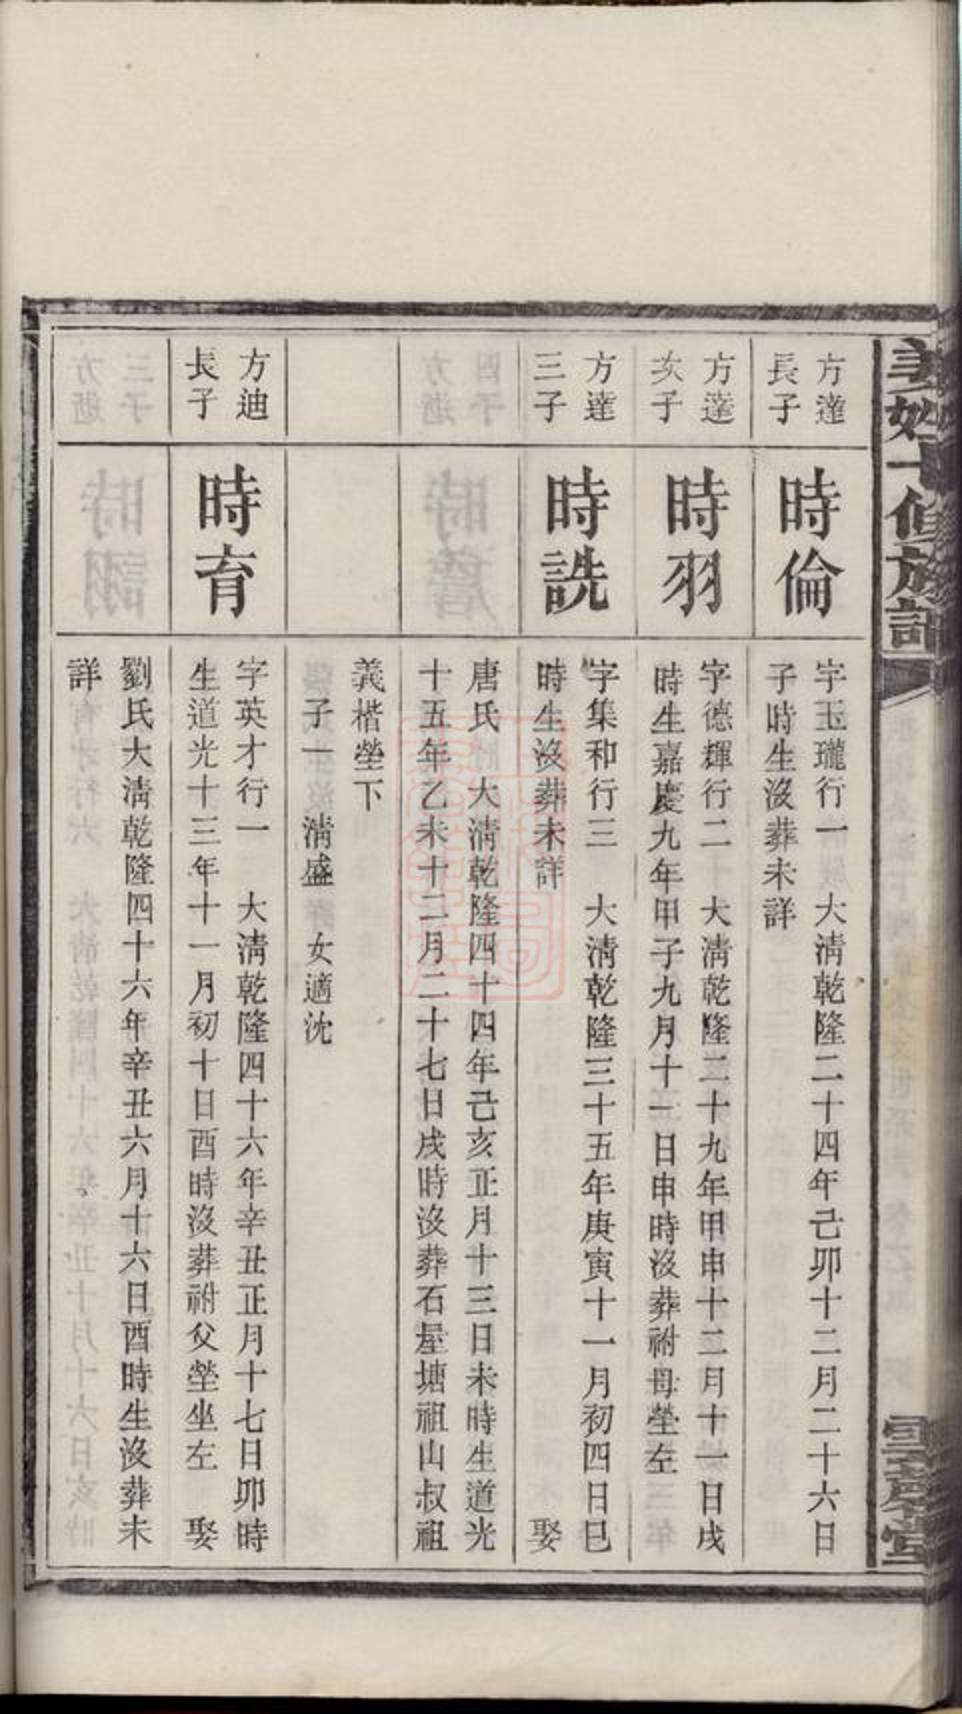 方達
長子
時倫
字玉瓏行一　大淸乾隆二十四年己卯十二月二十六日
子時生沒葬未詳
方達
次子
時羽
字德輝行二　大淸乾隆二十九年甲申十二月十一日戌
時生嘉慶九年甲子九月十一日申時沒葬祔母塋左
方達
三子
時詵
字集和行三　大淸乾隆三十五年庚寅十一月初四日巳
時生沒葬未詳　娶
唐氏　大淸乾隆四十四年己亥正月十三日未時生道光
十五年乙未十二月二十七日戌時沒葬石屋塘祖山叔祖
義楷塋下
子一　淸盛　女適沈
方迪
長子
時育
字英才行一　大淸乾隆四十六年辛丑正月十七日卯時
生道光十三年十一月初十日酉時沒葬祔父塋坐左　娶
劉氏大淸乾隆四十六年辛丑六月十六日酉時生沒葬未
詳